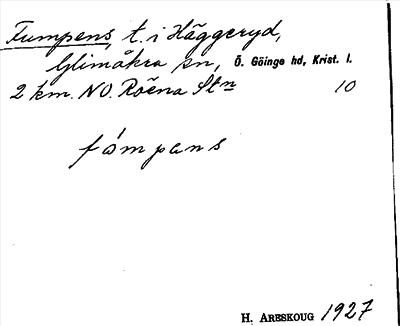 Fumpens, t. i Häggeryd,
Glimåkra sn, Ö. Göinge hd, Krist. l.
2 km. NO. Röena Stn 10
fómpans
H. ARESKOUG 1927